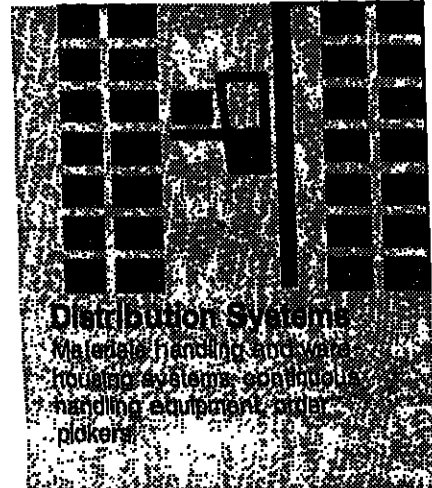 Distribution Systems
Materials handling and ware-
housing systems, continuous
handling equipment, order
pickers.